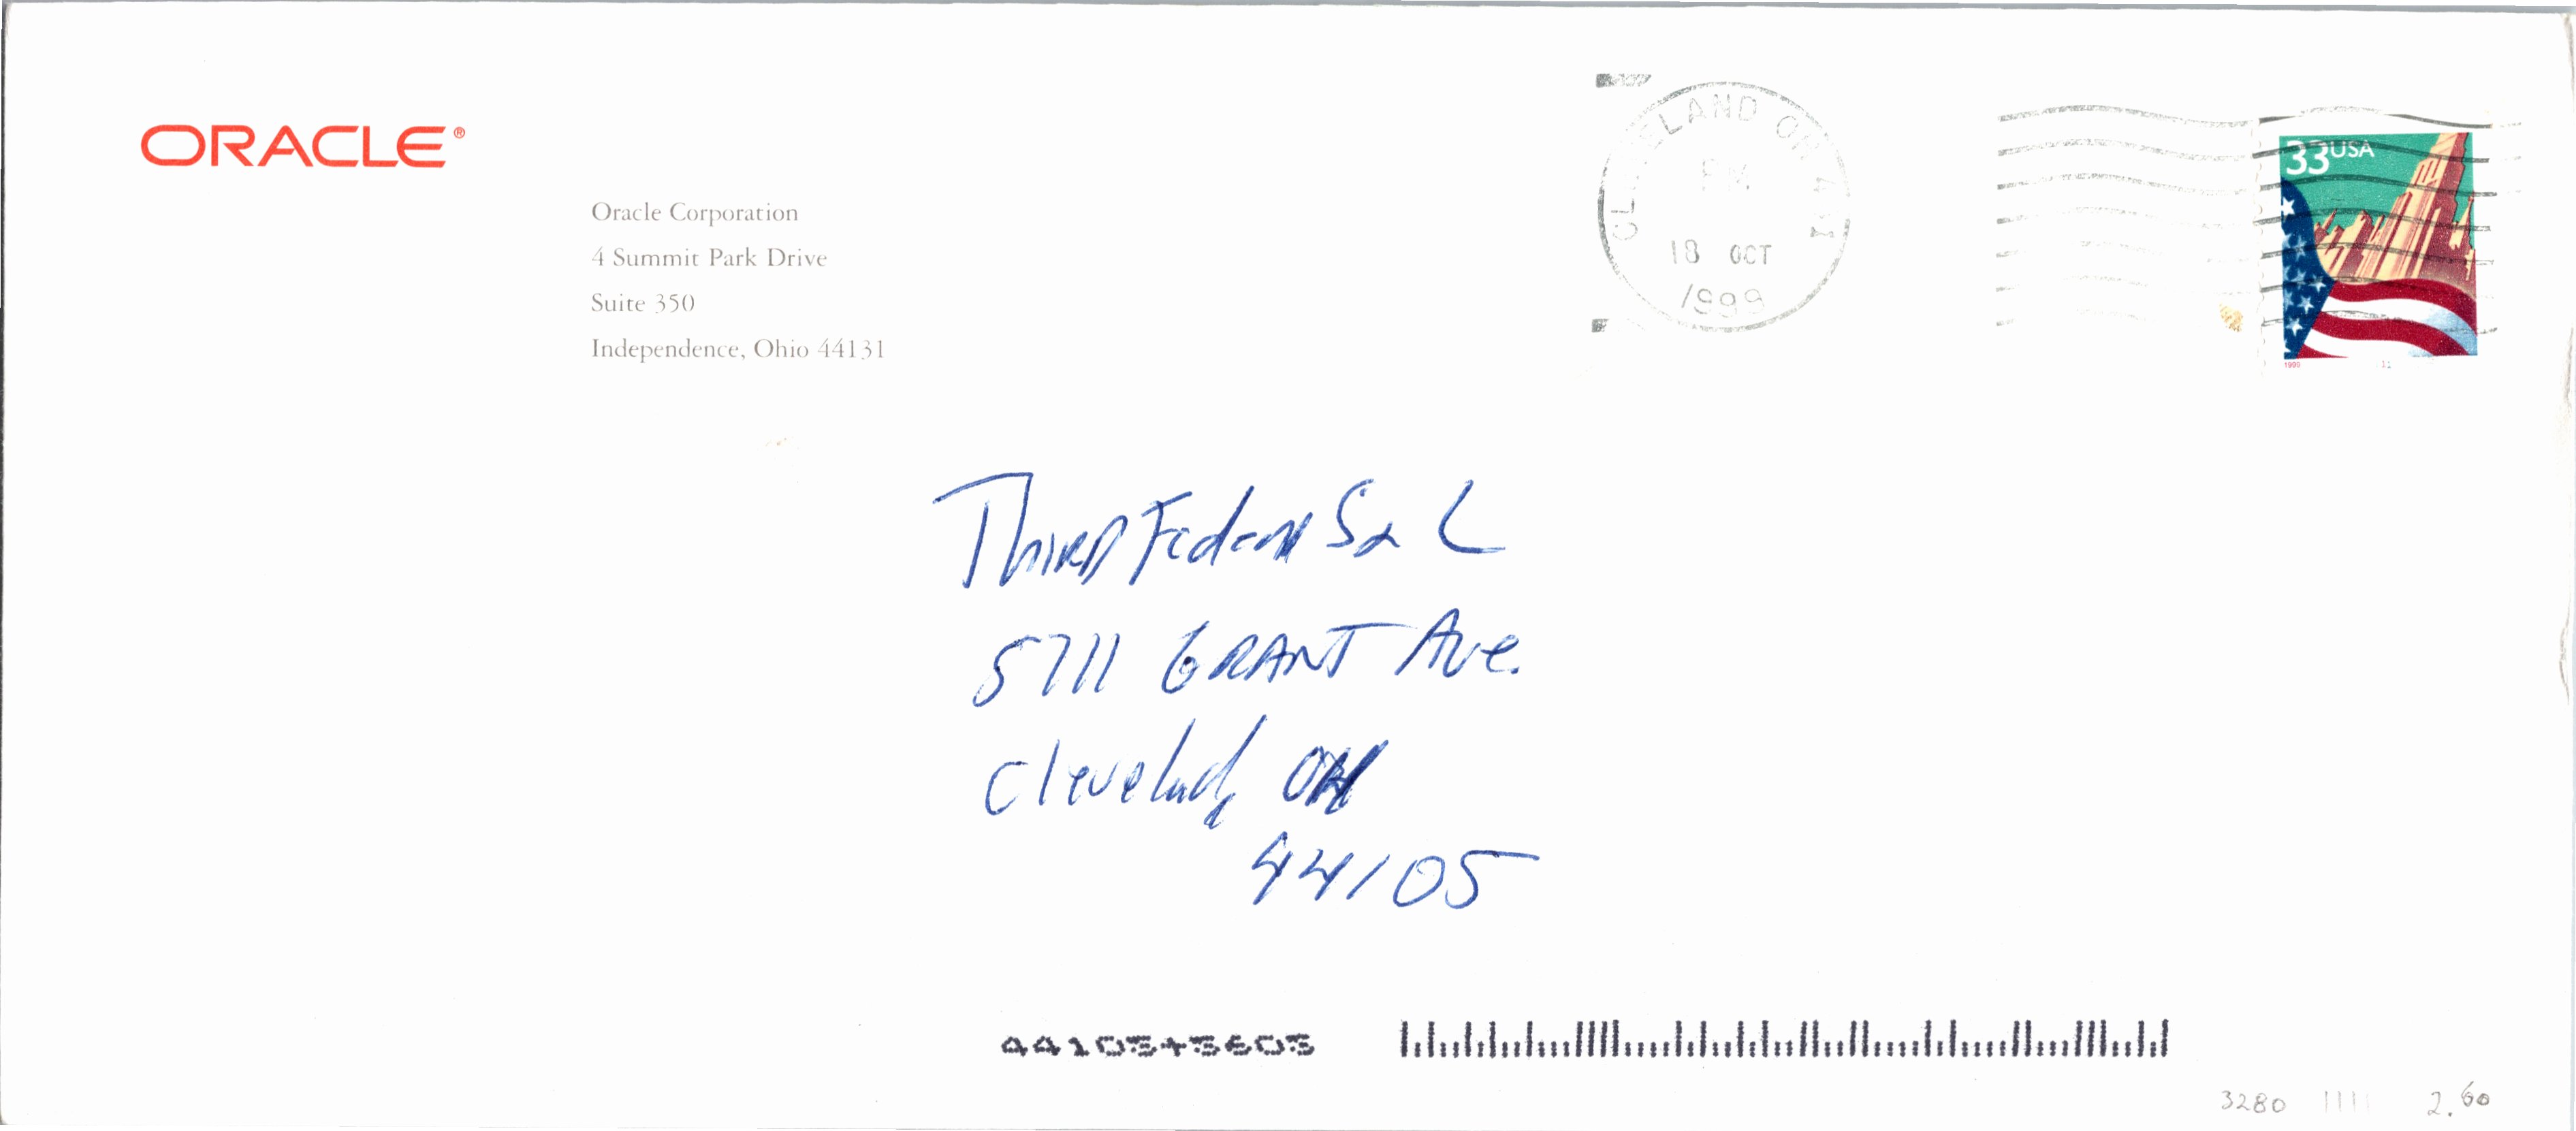 ORACLE®
Oracle Corporation
4 Summit Park Drive
Suite 350
Independence, Ohio 44131
CLEVELAND OH 441
PM
18 OCT
1999
33 USA
1999
Third Federal S & L
5711 GRANT Ave.
Cleveland, OH
44105
44105+3603
3280 1111 2.60